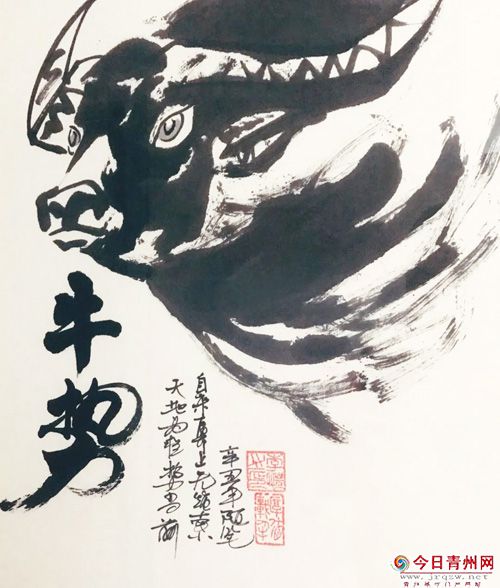 牛势
自来鼻上无绳索
天地为栏势
辛丑年随笔
今日青州网
www.jrqzw.net